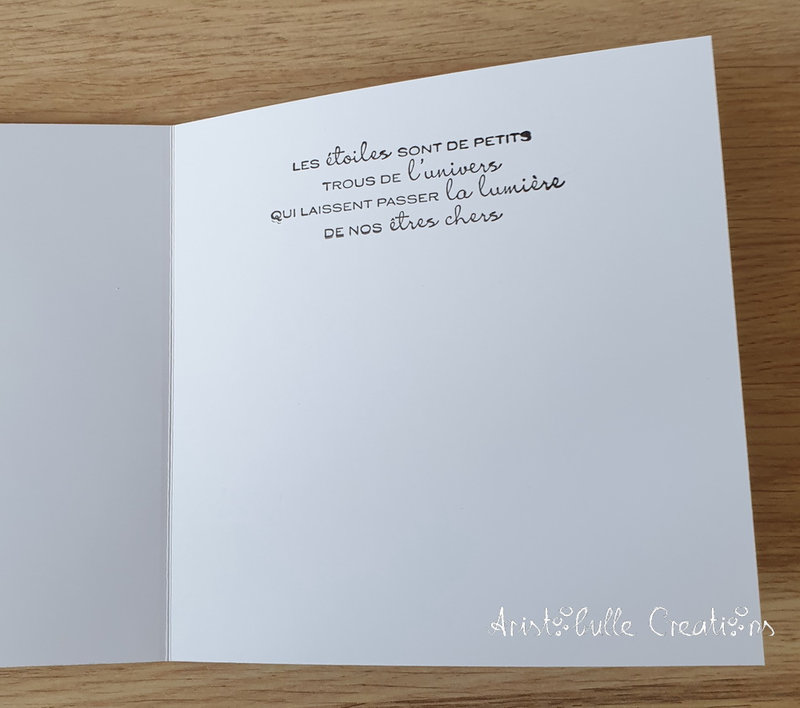 LES étoiles SONT DE PETITS
TROUS DE l'univers
QUI LAISSENT PASSER la lumière
DE NOS êtres chers
Aristobulle Creations